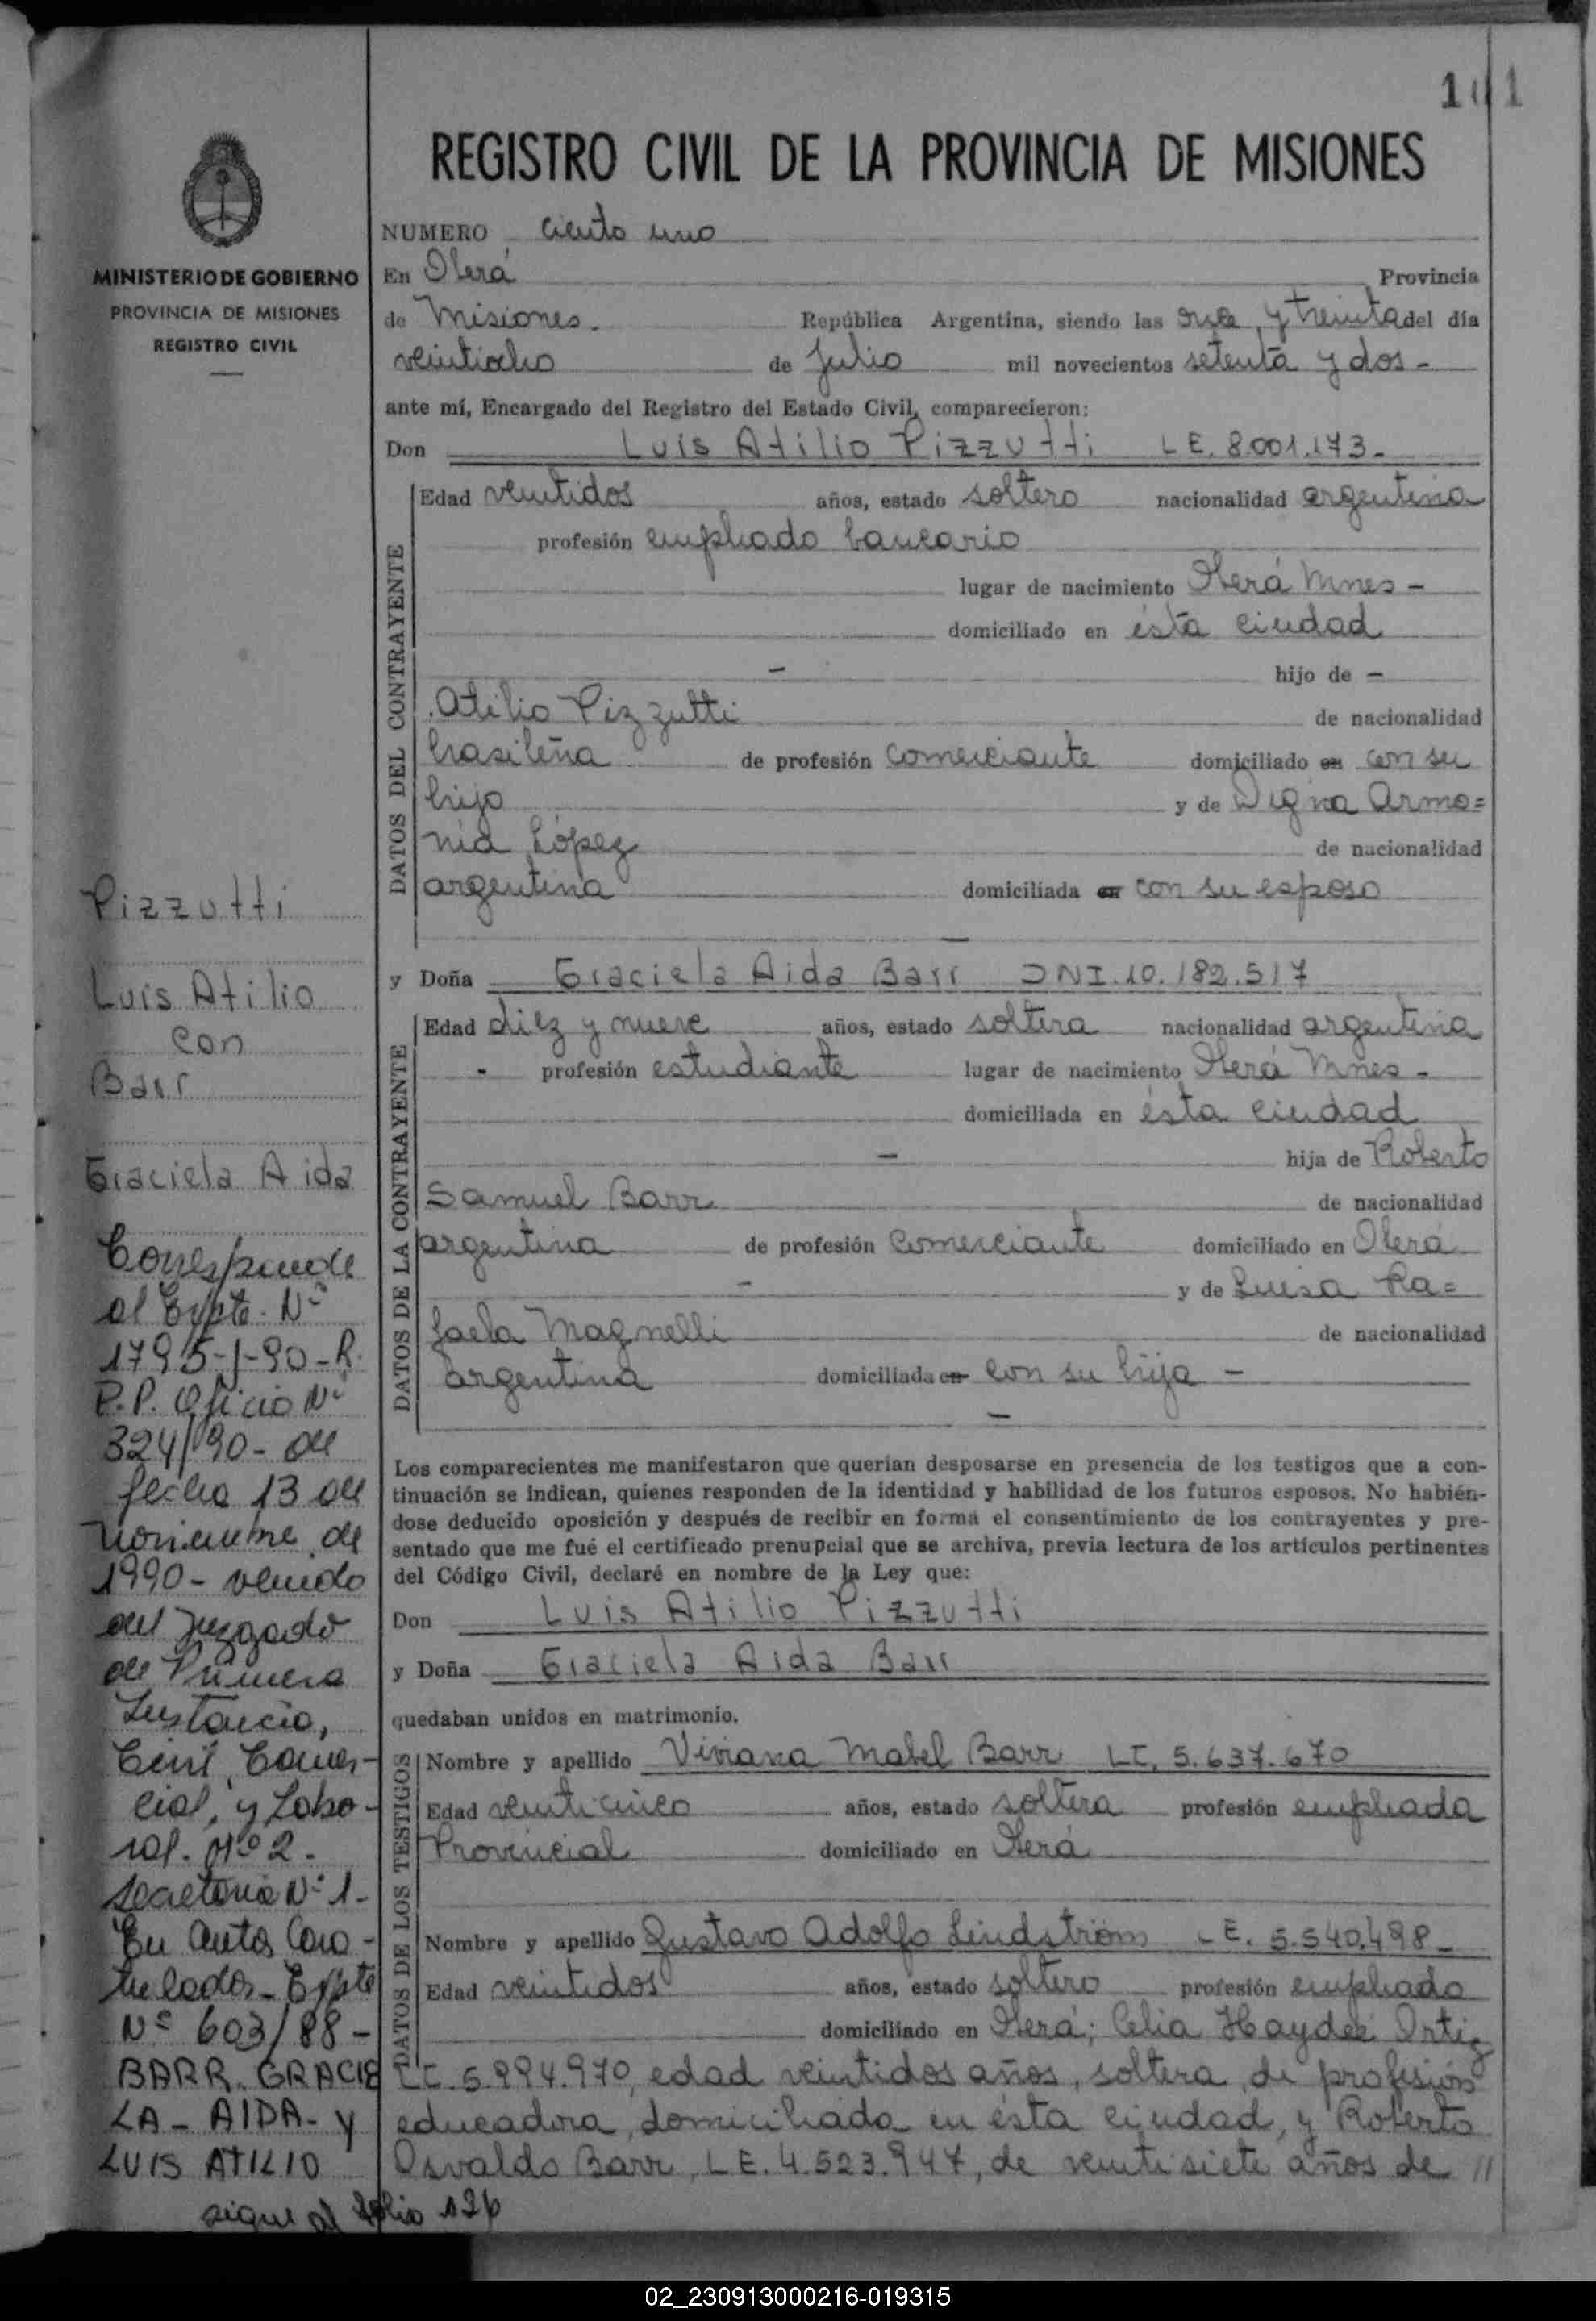 101
REGISTRO CIVIL DE LA PROVINCIA DE MISIONES
MINISTERIO DE GOBIERNO
PROVINCIA DE MISIONES
REGISTRO CIVIL
NUMERO ciento uno
En Oberá Provincia
de Misiones. República Argentina, siendo las once y treinta del día
veintiocho de julio mil novecientos setenta y dos -
ante mí, Encargado del Registro del Estado Civil, comparecieron:
Don Luis Atilio Pizzutti LE. 8.001.173.-
DATOS DEL CONTRAYENTE
Edad veintidos años, estado soltero nacionalidad argentina
profesión empleado bancario
lugar de nacimiento Oberá Mnes -
domiciliado en ésta ciudad
- hijo de -
Atilio Pizzutti de nacionalidad
brasileña de profesión comerciante domiciliado en con su
hijo y de Digna Armo=
nia López de nacionalidad
argentina domiciliada en con su esposo
-
y Doña Graciela Aida Barr DNI.10.182.517
DATOS DE LA CONTRAYENTE
Edad diez y nueve años, estado soltera nacionalidad argentina
- profesión estudiante lugar de nacimiento Oberá Mnes -
domiciliada en ésta ciudad
- hija de Roberto
Samuel Barr de nacionalidad
argentina de profesión comerciante domiciliado en Oberá
- y de Luisa Ra=
faela Magnelli de nacionalidad
argentina domiciliada en con su hija -
-
Los comparecientes me manifestaron que querían desposarse en presencia de los testigos que a con-
tinuación se indican, quienes responden de la identidad y habilidad de los futuros esposos. No habién-
dose deducido oposición y después de recibir en forma el consentimiento de los contrayentes y pre-
sentado que me fué el certificado prenupcial que se archiva, previa lectura de los artículos pertinentes
del Código Civil, declaré en nombre de la Ley que:
Don Luis Atilio Pizzutti
y Doña Graciela Aida Barr
quedaban unidos en matrimonio.
DATOS DE LOS TESTIGOS
Nombre y apellido Viviana Mabel Barr LC. 5.637.670
Edad veinticinco años, estado soltera profesión empleada
Provincial domiciliado en Oberá
Nombre y apellido Gustavo Adolfo Lindström LE. 5.540.498-
Edad veintidos años, estado soltero profesión empleado
domiciliado en Oberá; Celia Haydeé Ortiz
LC. 5.994.970, edad veintidos años, soltera, de profesión
educadora, domiciliada en ésta ciudad, y Roberto
Osvaldo Barr, LE. 4.523.947, de veintisiete años de //
Pizzutti
Luis Atilio
con
Barr
Graciela Aida
Corresponde
al Expte. Nº
1795-J-90-R.
P.P. Oficio Nº
324/90- de
fecha 13 de
noviembre de
1990- venido
del Juzgado
de Primera
Instancia,
Civil, Comer-
cial, y Labo-
ral. Nº 2.-
Secretaria Nº 1.-
En Autos Cara-
tulados- Expte
Nº 603/88-
BARR, GRACIE
LA - AIDA - y
LUIS ATILIO
sigue al folio 126
02_230913000216-019315